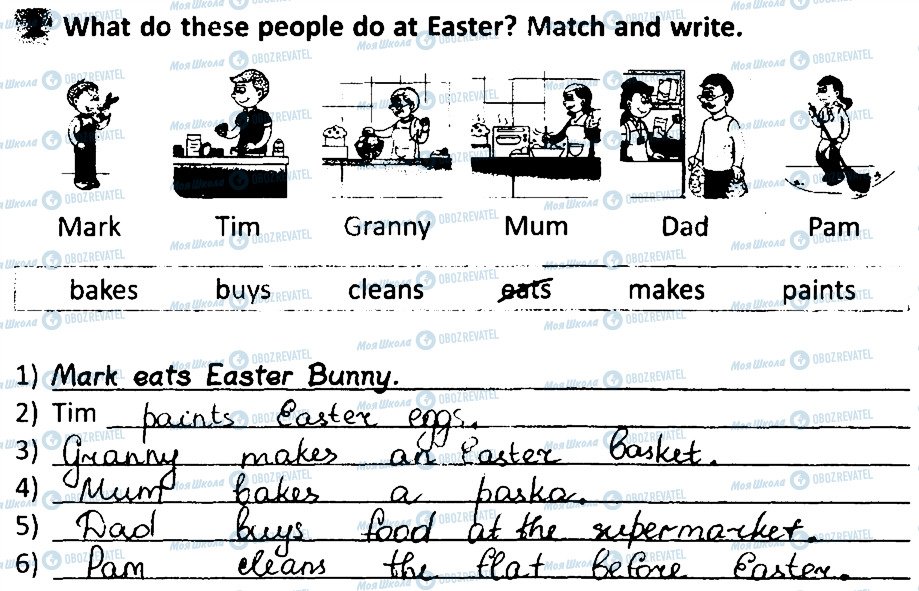 2 What do these people do at Easter? Match and write.
Mark Tim Granny Mum Dad Pam
bakes buys cleans eats makes paints
1) Mark eats Easter Bunny.
2) Tim paints Easter eggs.
3) Granny makes an Easter basket.
4) Mum bakes a paska.
5) Dad buys food at the supermarket.
6) Pam cleans the flat before Easter.
Моя Школа OBOZREVATEL